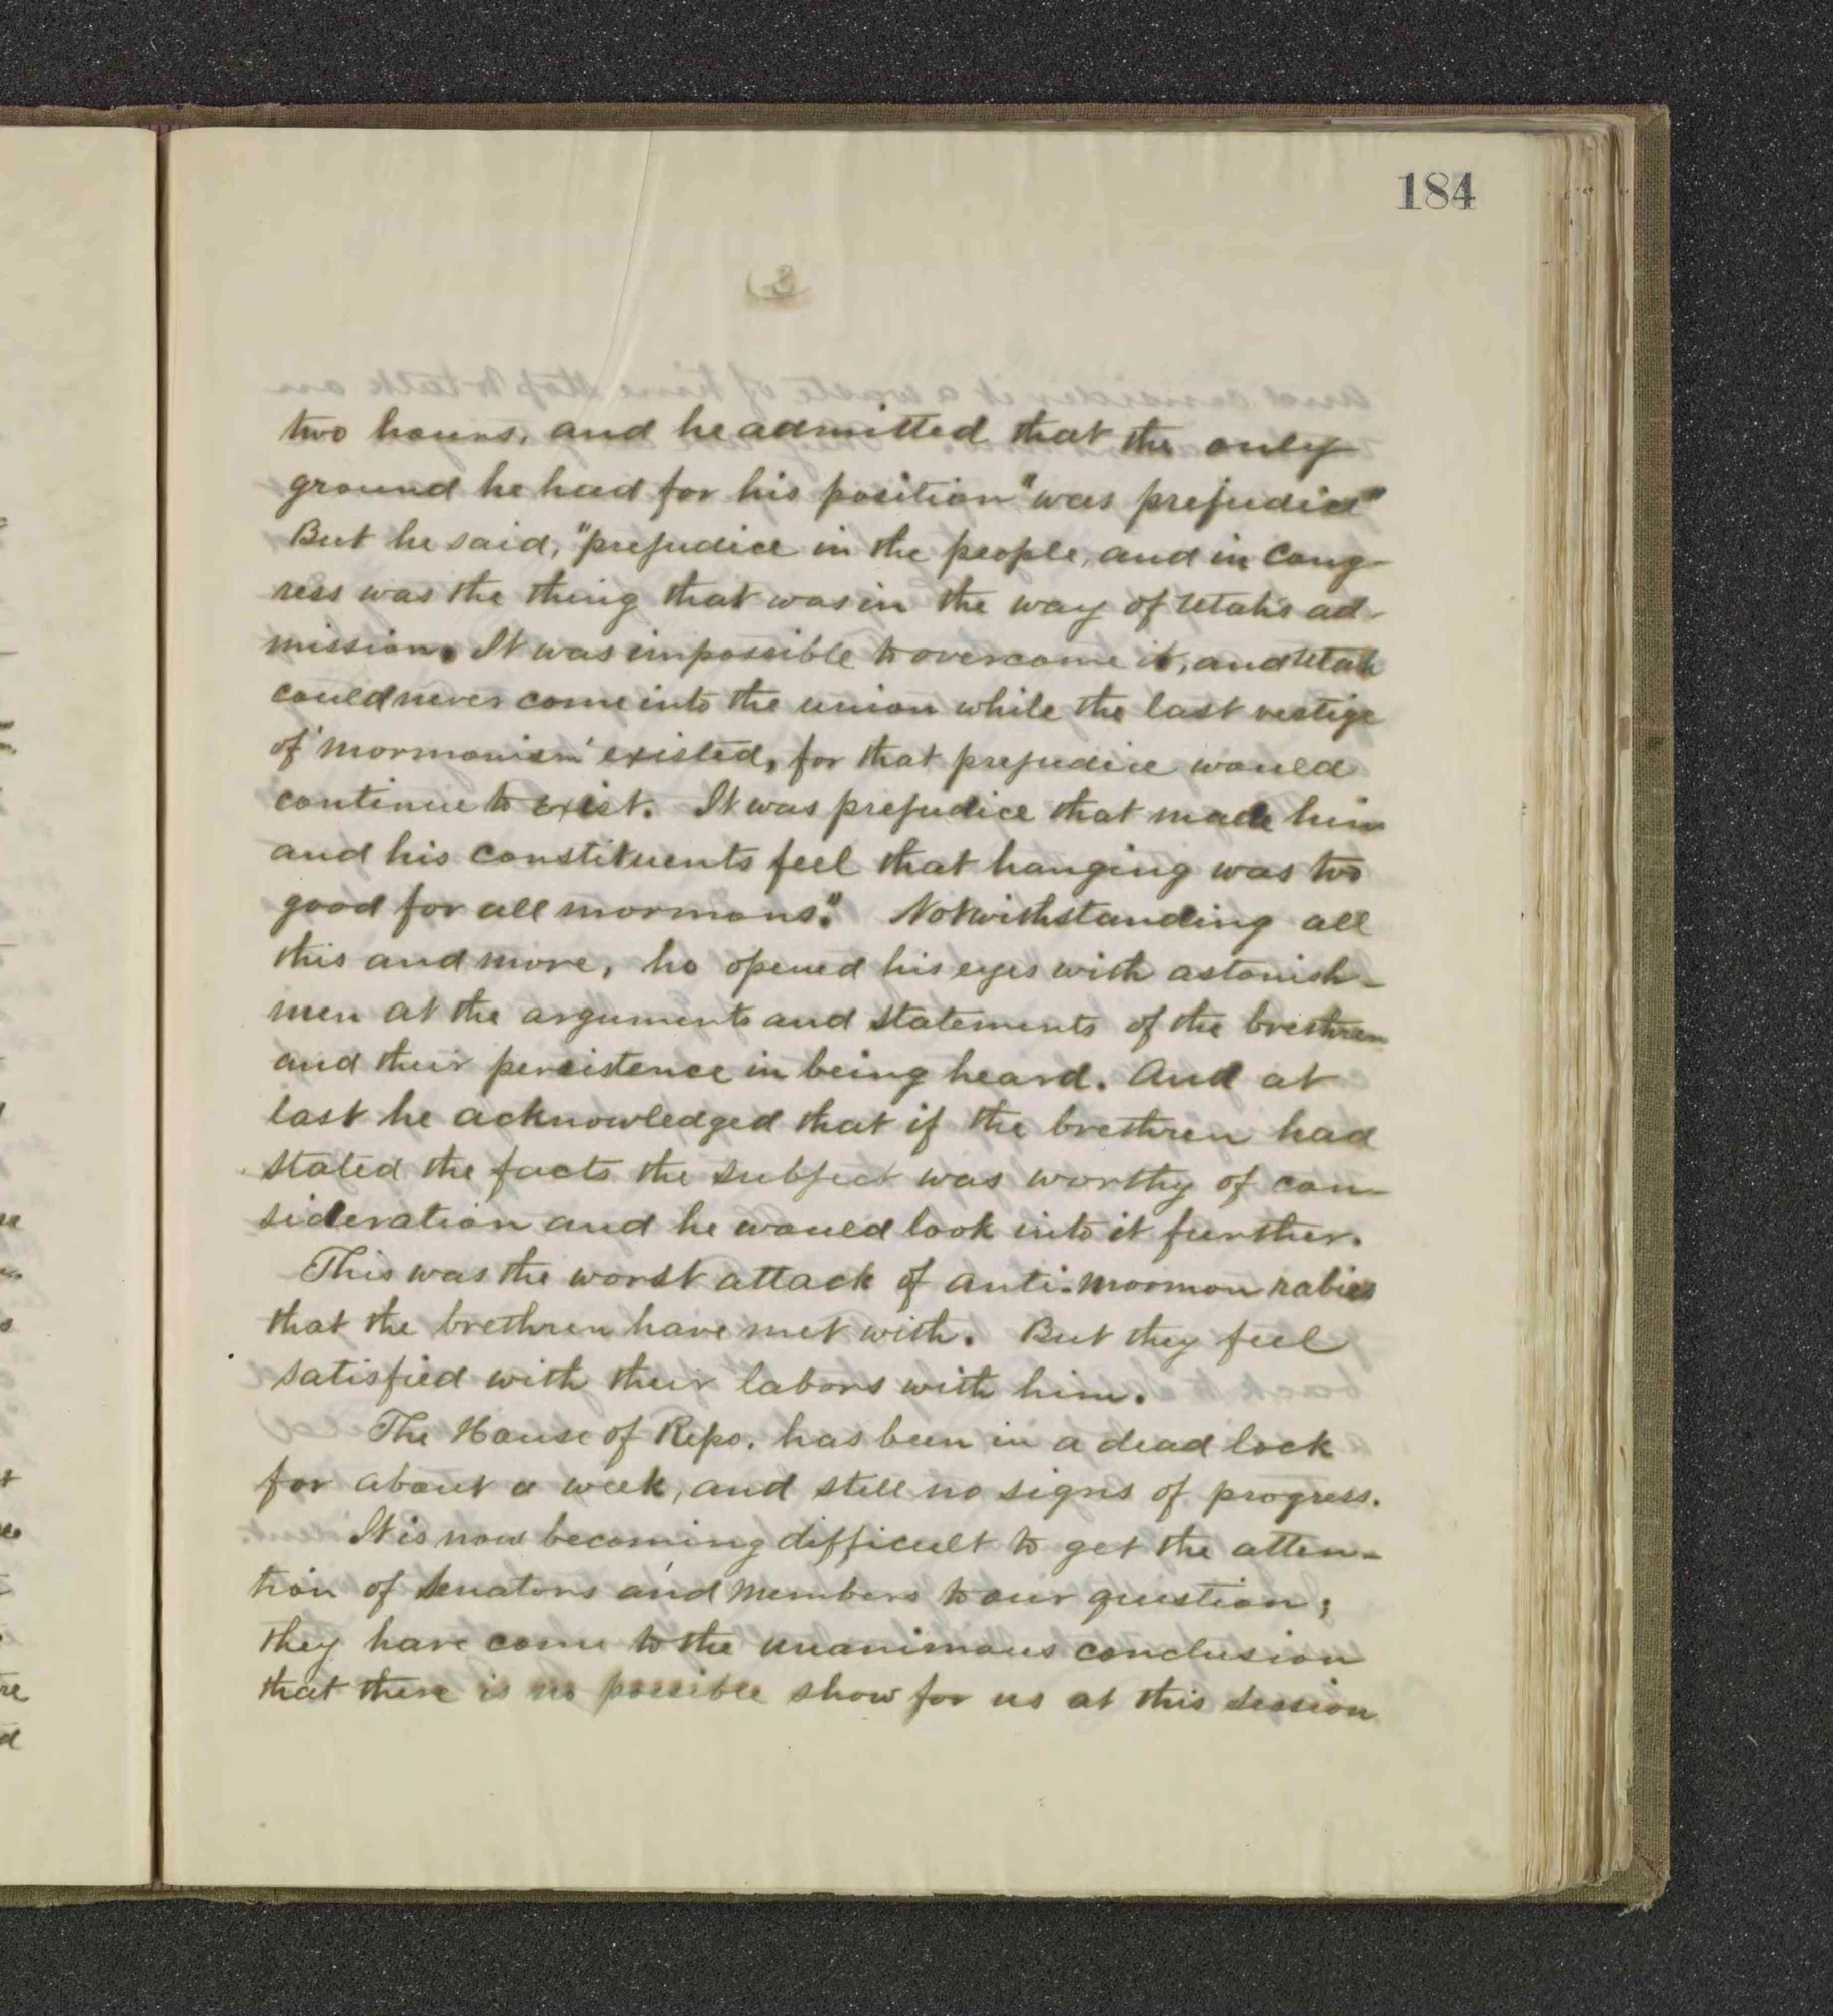 184
two hours, and he admitted that the only
ground he had for his position "was prejudice"
But he said, "prejudice in the people, and in Cong-
ress was the thing that was in the way of Utah's ad-
mission. It was impossible to overcome it, and Utah
could never come into the union while the last vestige
of 'mormonism' existed, for that prejudice would
continue to exist. It was prejudice that made him
and his constituents feel that hanging was too
good for all mormons." Notwithstanding all
this and more, he opened his eyes with astonish-
men at the arguments and statements of the brethren
and their persistence in being heard. And at
last he acknowledged that if the brethren had
stated the facts the subject was worthy of con-
sideration and he would look into it further.
This was the worst attack of anti-mormon rabies
that the brethren have met with. But they feel
satisfied with their labors with him.
The House of Reps. has been in a dead lock
for about a week, and still no signs of progress.
It is now becoming difficult to get the atten-
tion of Senators and Members to our question;
they have come to the unanimous conclusion
that there is no possible show for us at this session